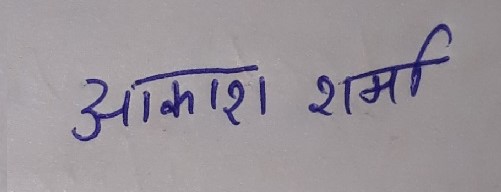 आकाश शर्मा